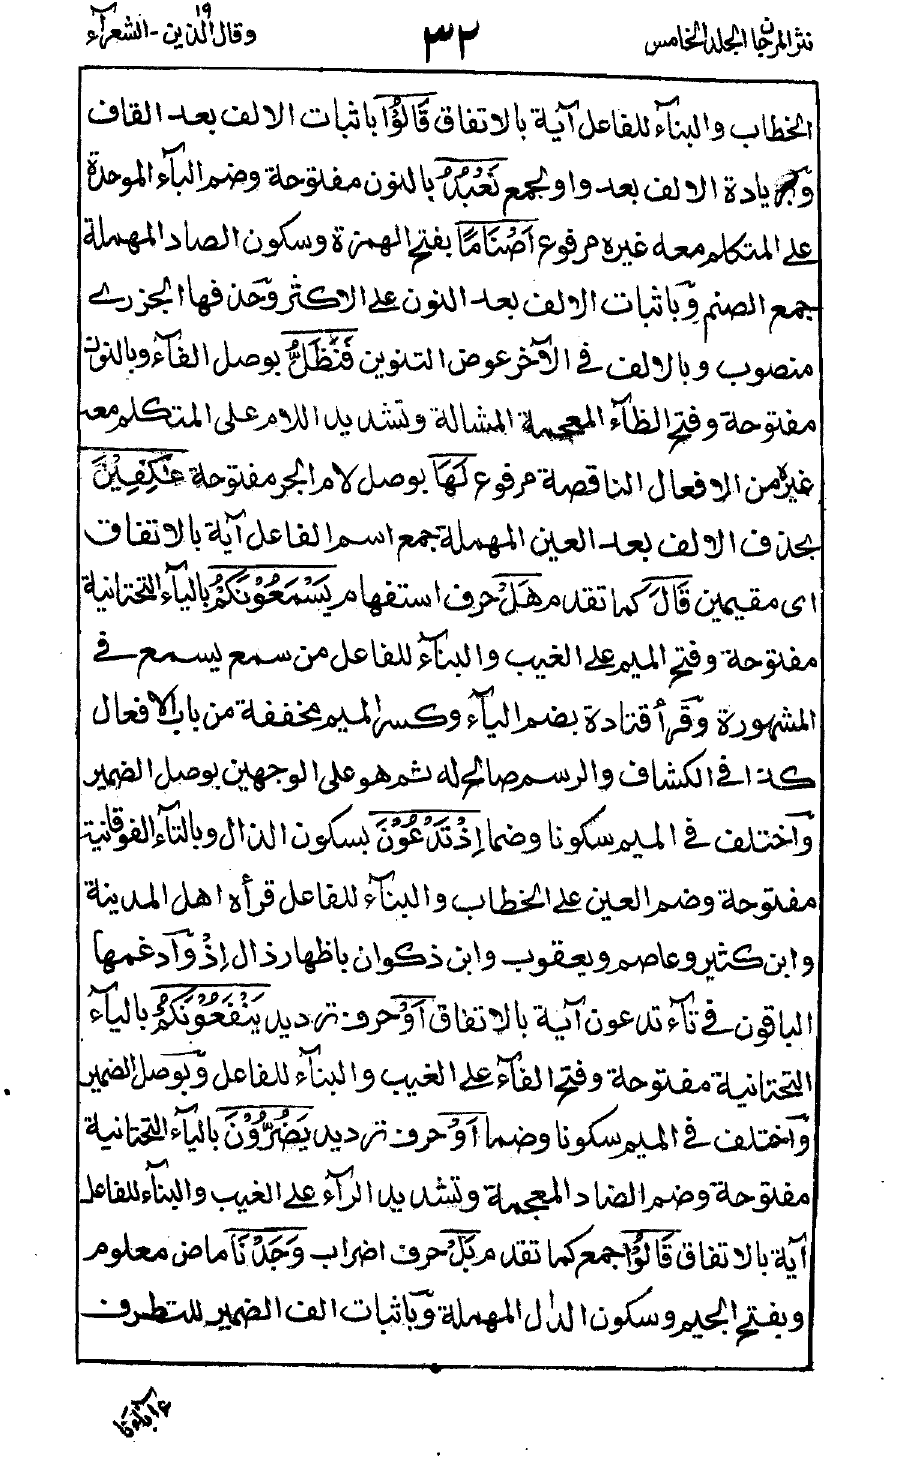 نثر المرجان الجلد الخامس
٣٢
وقال الذين ١٩ - الشعرآء
الخطاب والبنآء للفاعل آية بالاتفاق قَالُوْا باثبات الالف بعد القاف
وبزيادة الالف بعد واو الجمع نَعْبُدُ بالنون مفتوحة وضم البآء الموحدة
على المتكلم معه غيره مرفوع اَصْنَامًا بفتح الهمزة وسكون الصاد المهملة
جمع الصنم وباثبات الالف بعد النون على الاكثر وحذفها الجزرے
منصوب وبالالف فى الآخر عوض التنوين فَنَظَلُّ بوصل الفآء وبالنون
مفتوحة وفتح الظآء المعجمة المشالة وتشديد اللام على المتكلم معه
غيره من الافعال الناقصة مرفوع لَهَا بوصل لام الجر مفتوحة عٰكِفِيْنَ
بحذف الالف بعد العين المهملة جمع اسم الفاعل آية بالاتفاق
اى مقيمين قَالَ كما تقدم هَلْ حرف استفهام يَسْمَعُوْنَكُمْ بالياء التحتانية
مفتوحة وفتح الميم على الغيب والبنآء للفاعل من سمع يسمع فى
المشهورة وقرأ قتادة بضم اليآء وكسر الميم مخففة من باب الافعال
كذا فى الكشاف والرسم صالح له ثم هو على الوجهين بوصل الضمير
واختلف فى الميم سكونا وضما اِذْ تَدْعُوْنَ بسكون الذال وبالتآء الفوقانية
مفتوحة وضم العين على الخطاب والبنآء للفاعل قرأه اهل المدينة
وابن كثير وعاصم ويعقوب وابن ذكوان باظهار ذال اِذْ وادغمها
الباقون فى تآء تدعون آية بالاتفاق اَوْ حرف ترديد يَنْفَعُوْنَكُمْ باليآء
التحتانية مفتوحة وفتح الفآء على الغيب والبنآء للفاعل وبوصل الضمير
واختلف فى الميم سكونا وضما اَوْ حرف ترديد يَضُرُّوْنَ باليآء التحتانية
مفتوحة وضم الضاد المعجمة وتشديد الرآء على الغيب والبنآء للفاعل
آية بالاتفاق قَالُوْا جمع كما تقدم بَلْ حرف اضراب وَجَدْنَا ماض معلوم
وبفتح الجيم وسكون الدال المهملة وباثبات الف الضمير للتطرف